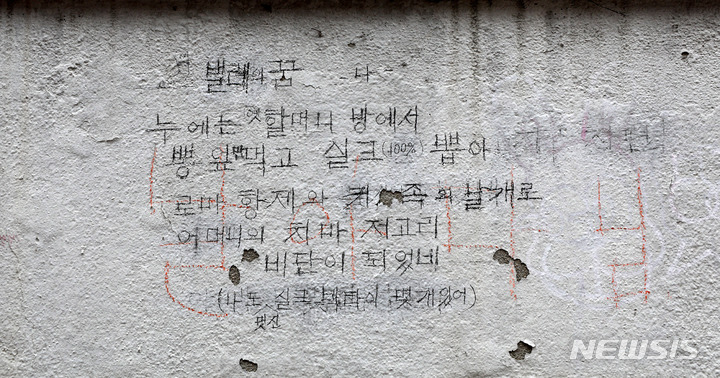 벌레의 꿈 나
누에는 옛 할머니 방에서
뽕 잎만 먹고 실크(100%) 뽑아
로마 황제와 귀족의 날개로
어머니의 치마 저고리
비단이 되었네
(나도 실크 넥타이 몇개 있어)
멋진
NEWSIS